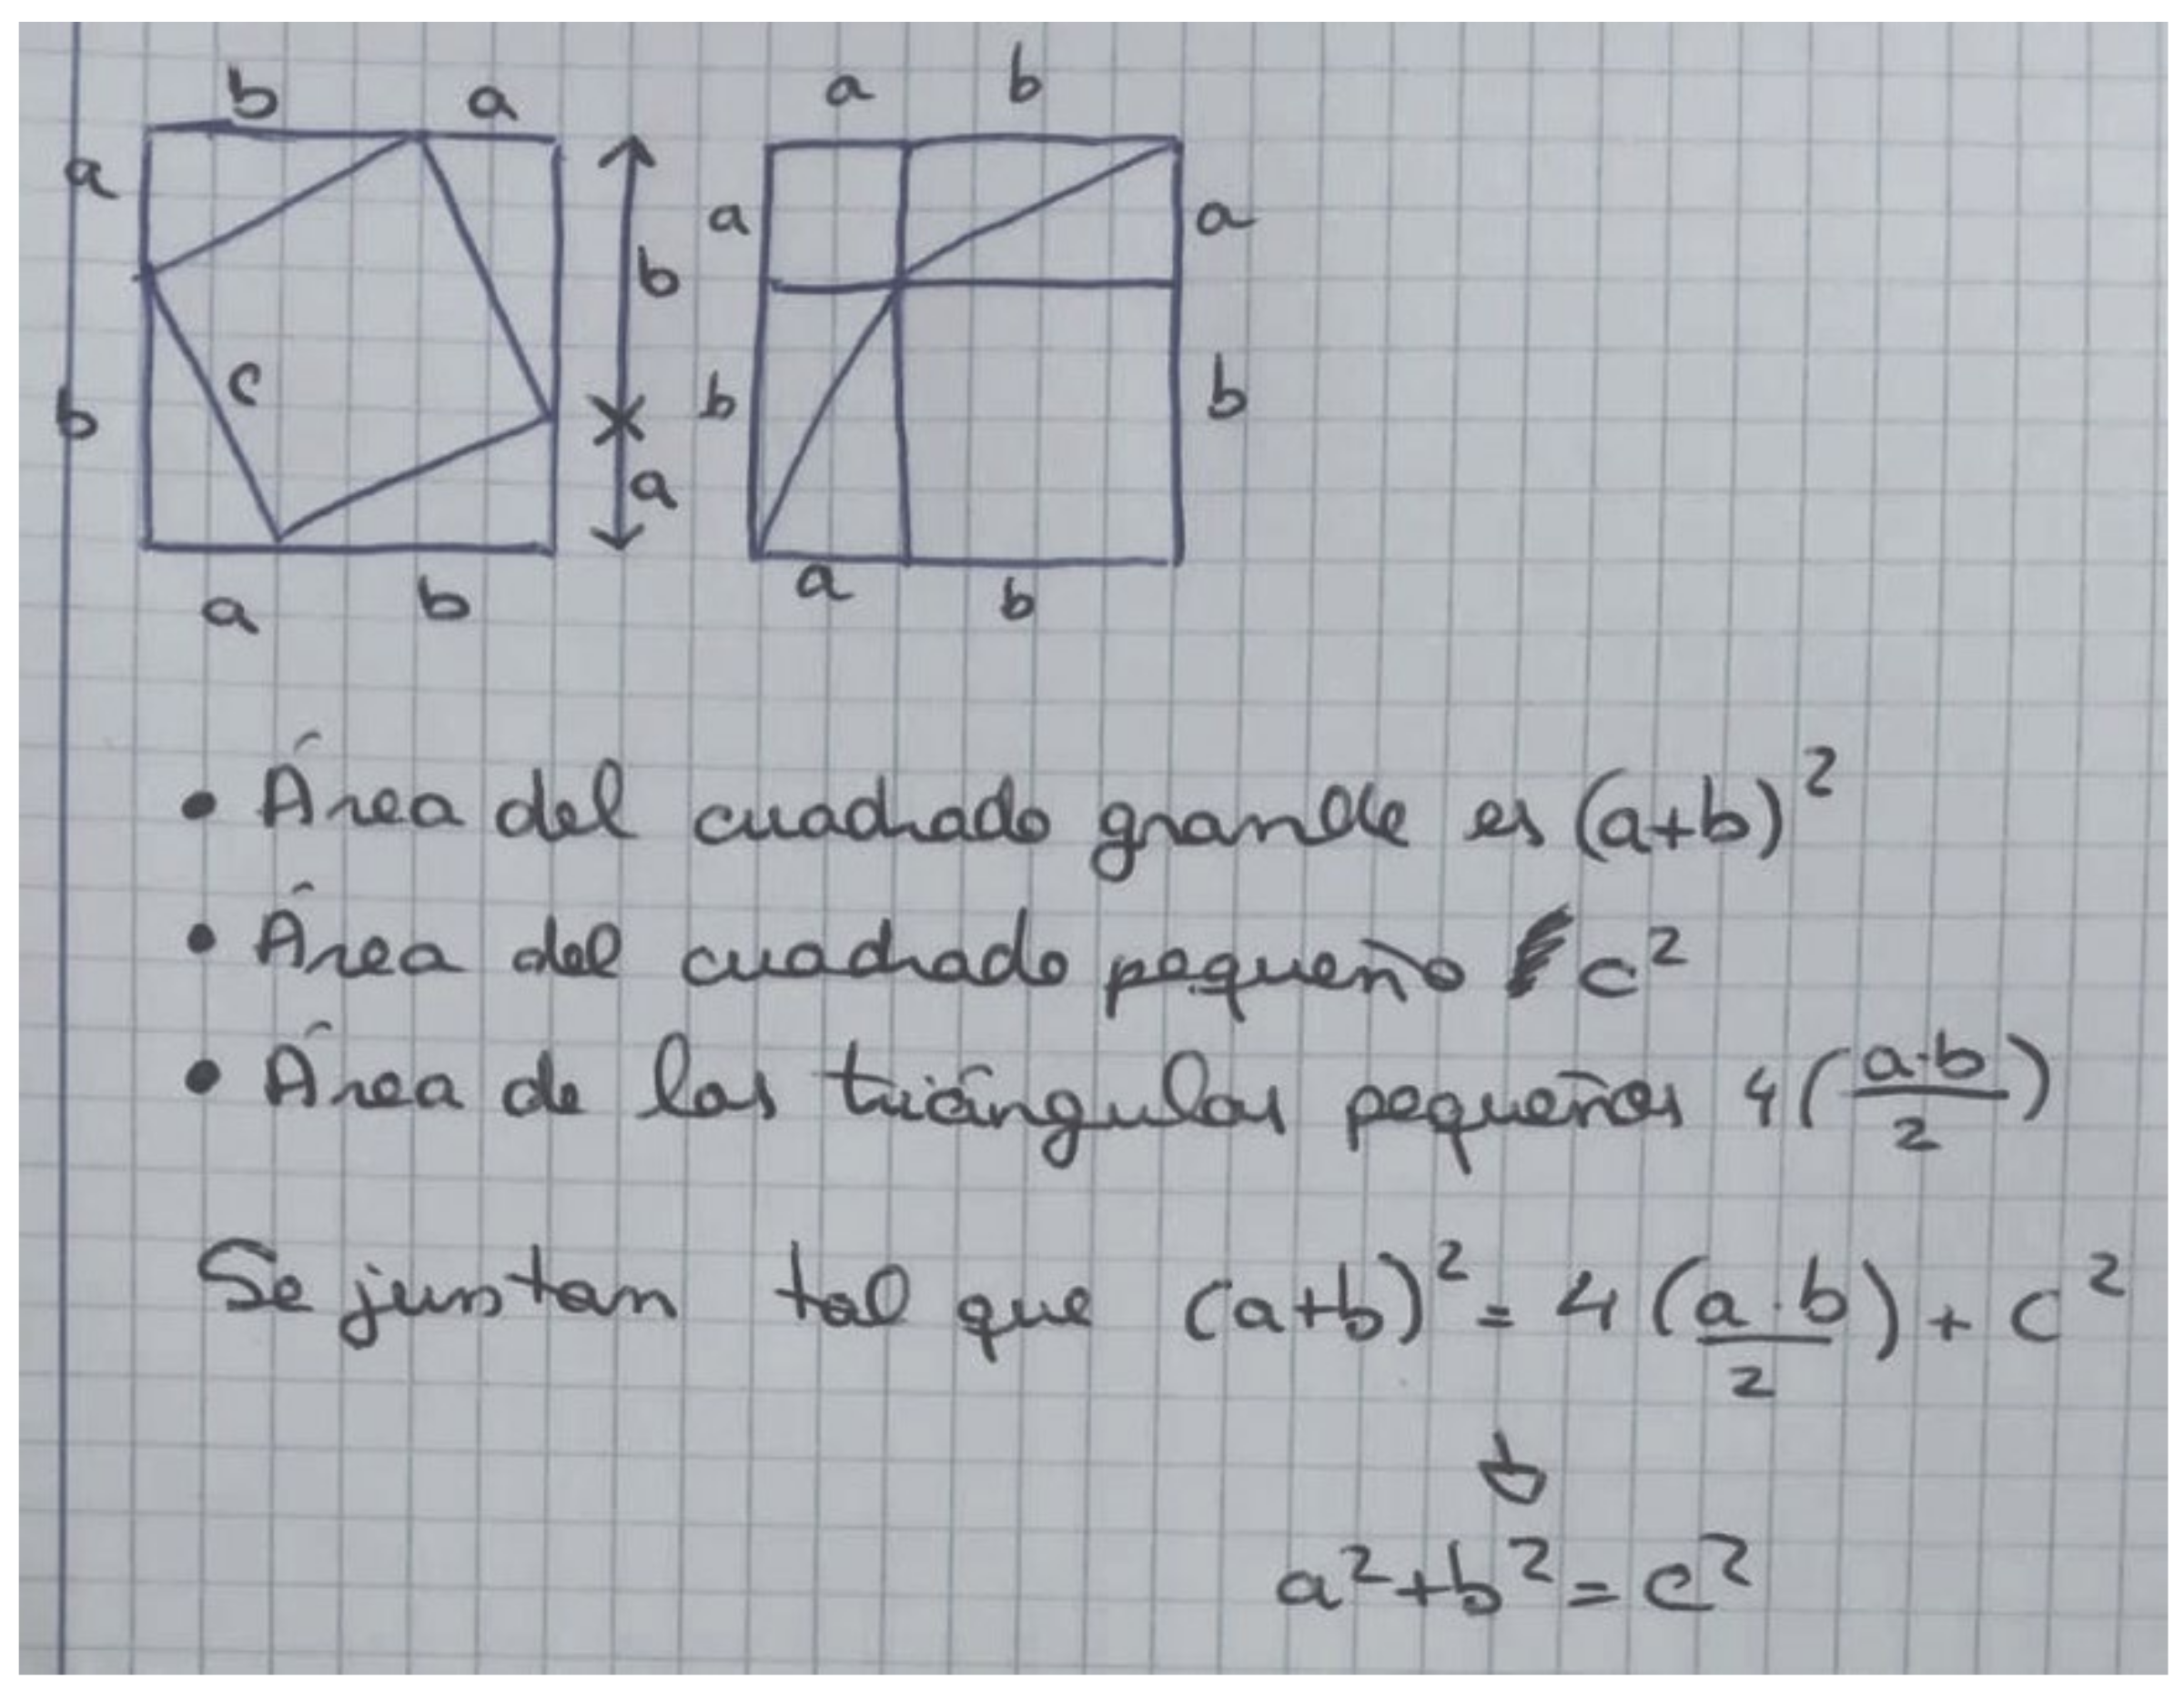 b a a b
a a a
b
c b b b
b a
a b a b
• Área del cuadrado grande es (a+b)²
• Área del cuadrado pequeño c²
• Área de los triángulos pequeños 4(a·b/2)
Se juntan tal que (a+b)² = 4(a·b/2) + c²
a²+b²=c²